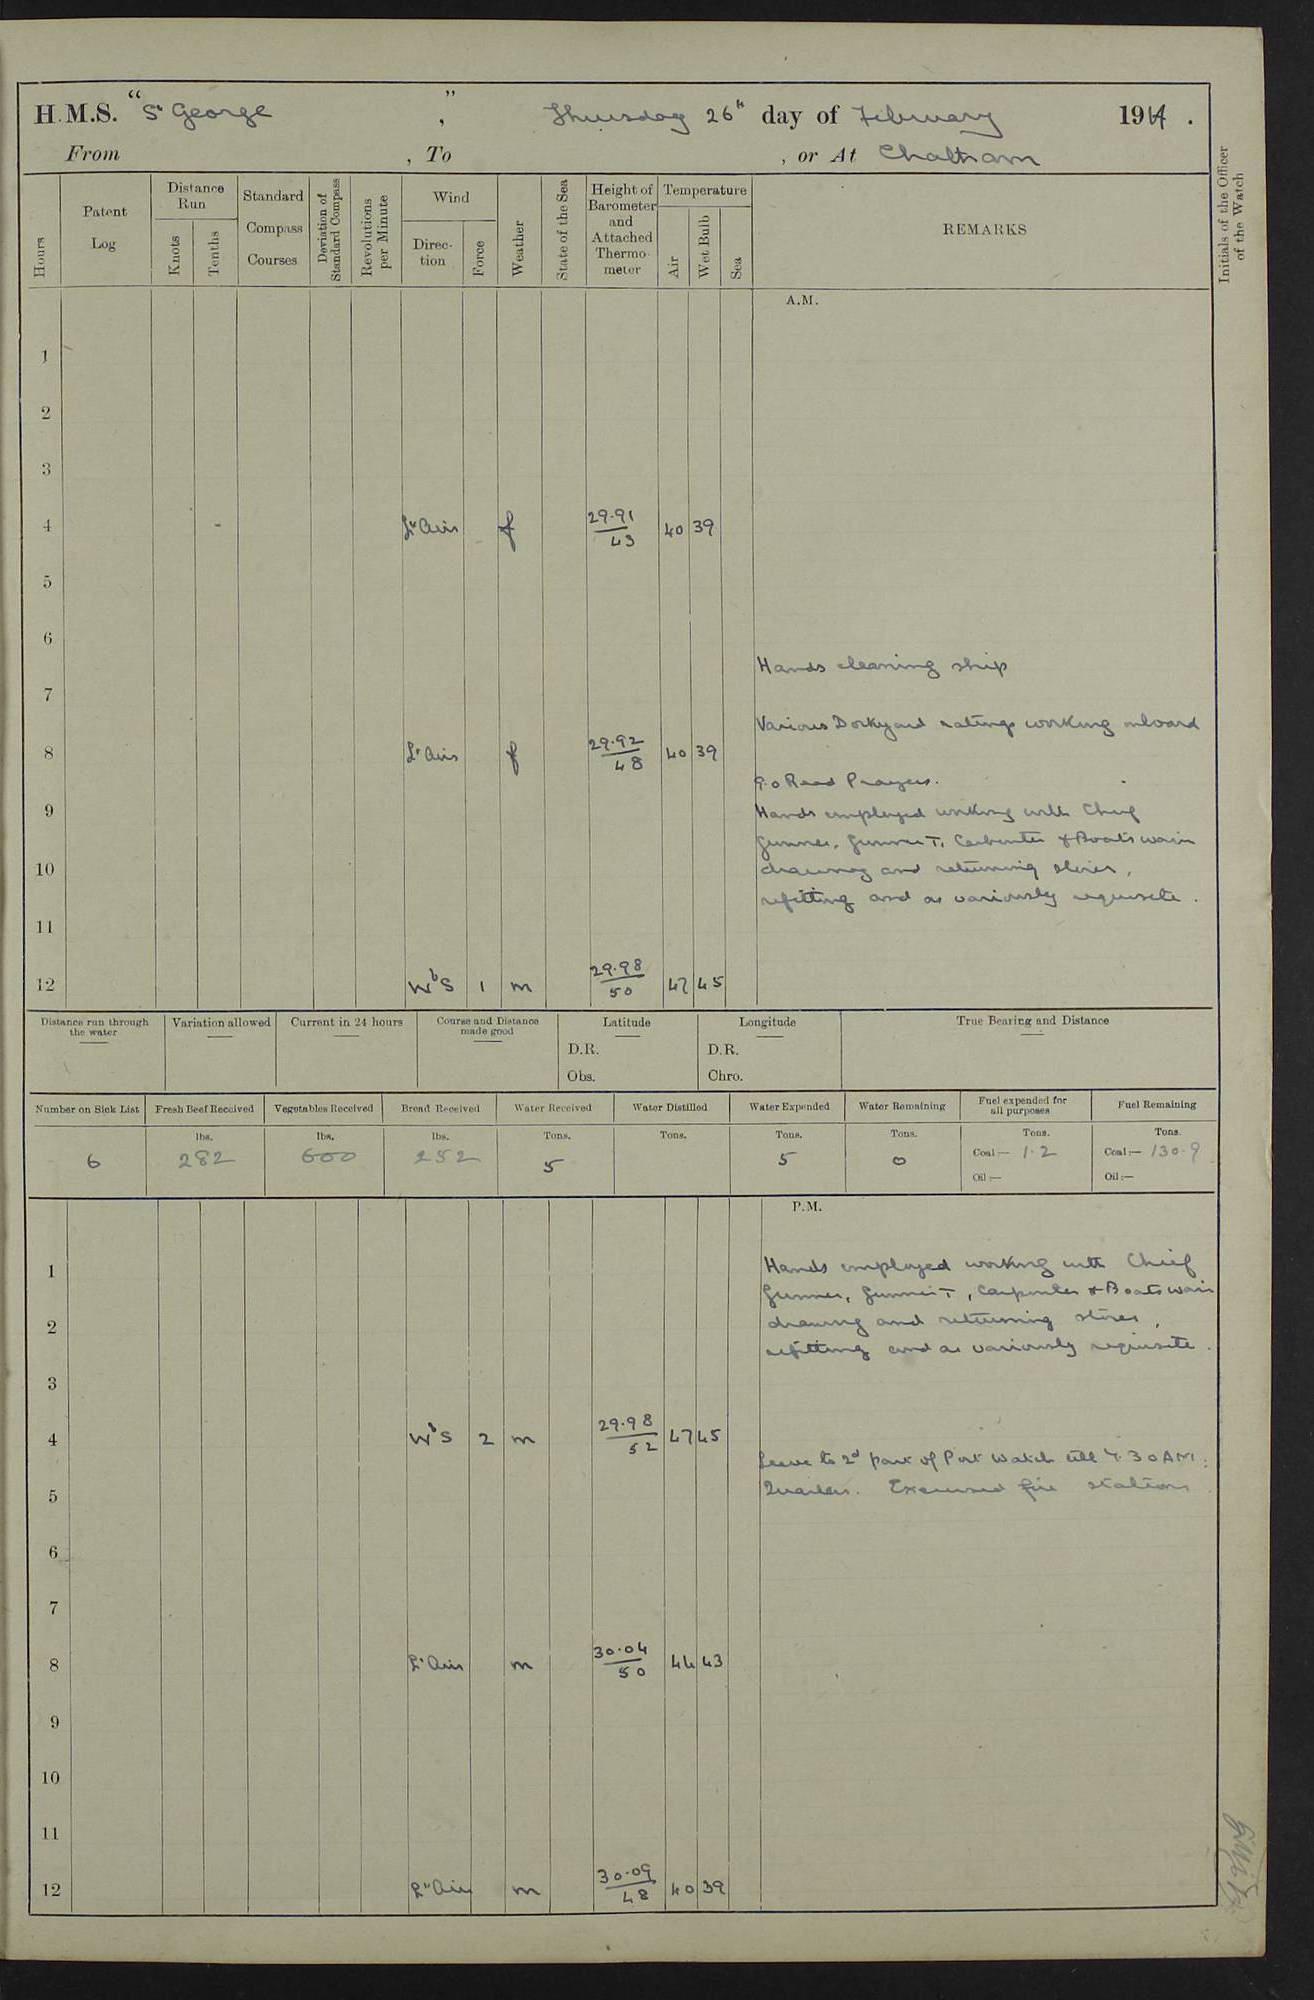 H.M.S. "St George", Thursday 26th day of February 1914.
From , To , or At Chatham
Hours
Patent Log
Distance Run
Knots
Tenths
Standard Compass Courses
Deviation of Standard Compass
Revolutions per Minute
Wind
Direction
Force
Weather
State of the Sea
Height of Barometer and Attached Thermometer
Temperature
Air
Wet Bulb
Sea
REMARKS
Initials of the Officer of the Watch
A.M.
1
2
3
4 Lt Airs f 29.91 43 40 39
5
6
Hands cleaning ship
7
Various Dockyard ratings working onboard
8 Lt Airs f 29.92 48 40 39
9.0 Read Prayers.
9 Hands employed working with Chief
Gunner, Gunner T, Carpenter & Boatswain
10 drawing and returning stores,
refitting and as variously requisite.
11
12 WbS 1 m 29.98 50 47 45
Distance run through the water
Variation allowed
Current in 24 hours
Course and Distance made good
Latitude
D.R.
Obs.
Longitude
D.R.
Chro.
True Bearing and Distance
Number on Sick List
Fresh Beef Received
Vegetables Received
Bread Received
Water Received
Water Distilled
Water Expended
Water Remaining
Fuel expended for all purposes
Fuel Remaining
6
lbs. 282
lbs. 600
lbs. 252
Tons. 5
Tons.
Tons. 5
Tons. 0
Tons. Coal:— 1.2
Oil:—
Tons. Coal:— 130.9
Oil:—
P.M.
1 Hands employed working with Chief
Gunner, Gunner T, Carpenter & Boatswain
2 drawing and returning stores,
refitting and as variously requisite.
3
4 WbS 2 m 29.98 52 47 45
Leave to 2d part of Port Watch till 7.30 AM.
5 Quarters. Exercised fire stations
6
7
8 Lt Airs m 30.04 50 44 43
9
10
11
12 Lt Airs m 30.09 48 40 39